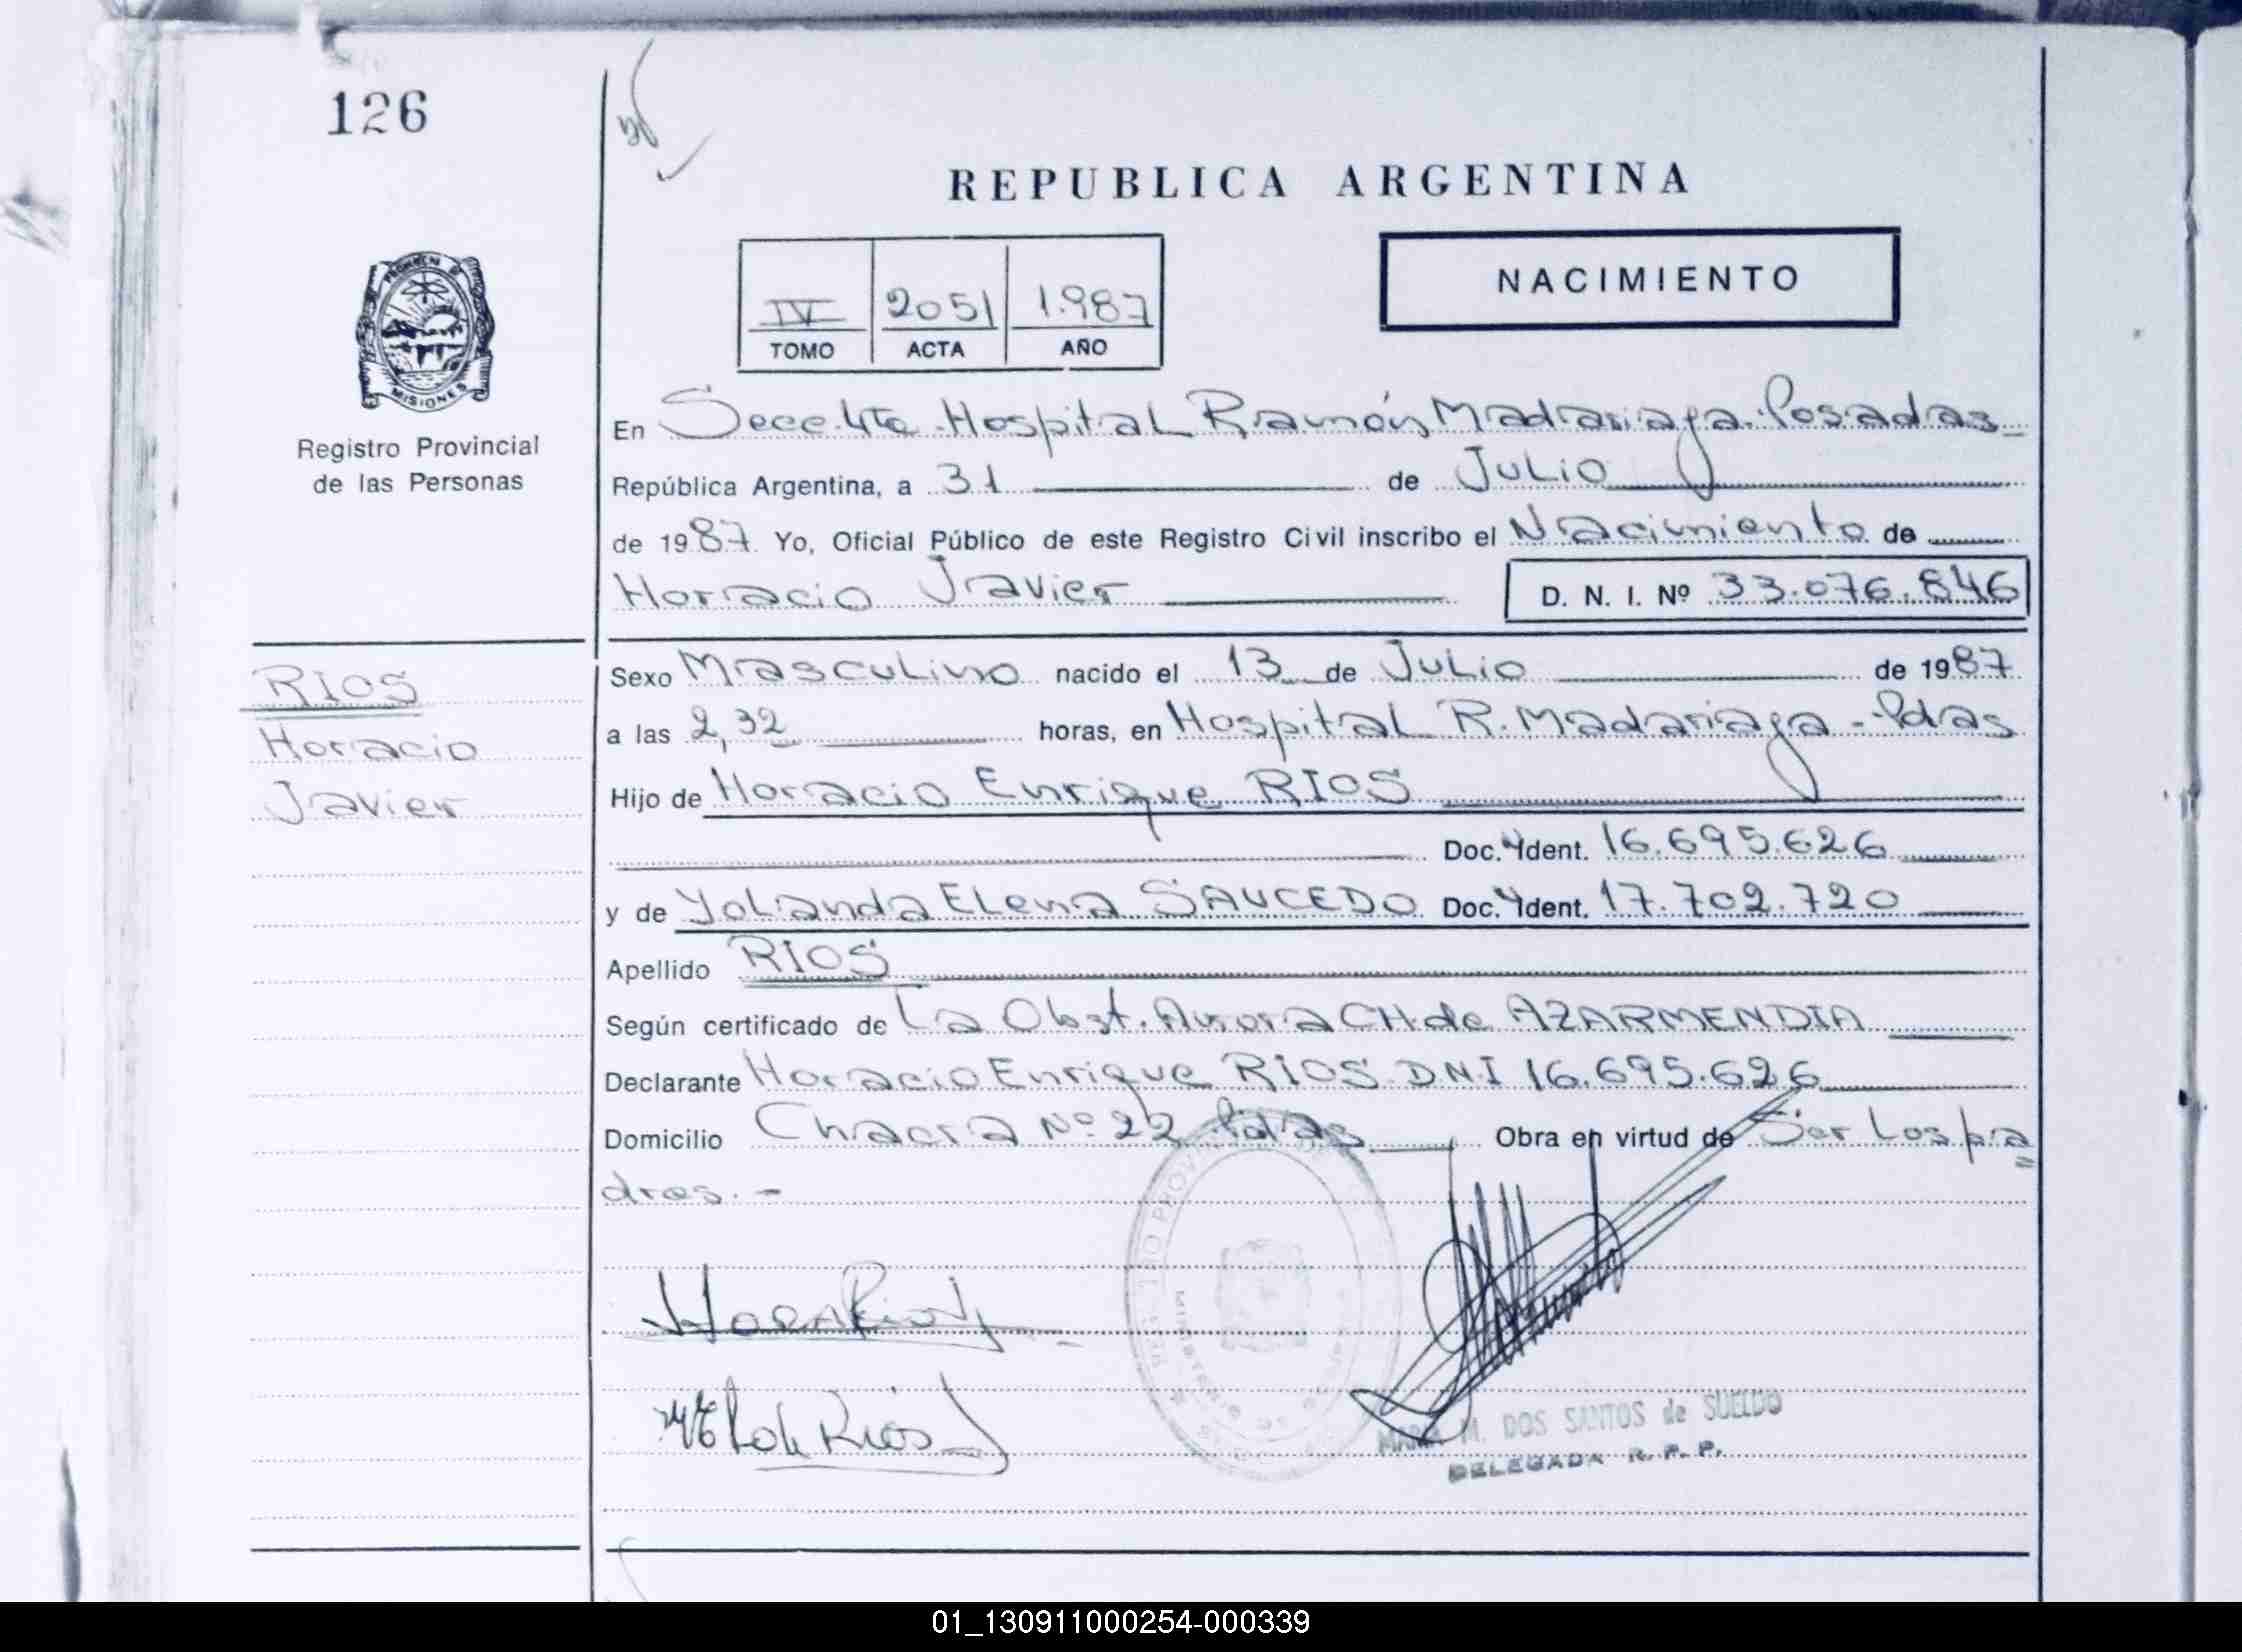 126
REPUBLICA ARGENTINA
NACIMIENTO
IV 2051 1.987
TOMO ACTA AÑO
PROVINCIA DE
MISIONES
Registro Provincial
de las Personas
En Secc. 4ta. Hospital Ramón Madariaga. Posadas
República Argentina, a 31 de Julio
de 1987. Yo, Oficial Público de este Registro Civil inscribo el Nacimiento de
Horacio Javier D. N. I. Nº 33.076.846
RIOS
Horacio
Javier
Sexo Masculino nacido el 13 de Julio de 1987
a las 2,32 horas, en Hospital R. Madariaga - Pdas
Hijo de Horacio Enrique RIOS
Doc. Ident. 16.695.626
y de Yolanda Elena SAUCEDO Doc. Ident. 17.702.720
Apellido RIOS
Según certificado de La Obst. Aurora CH. de AZARMENDIA
Declarante Horacio Enrique RIOS. DNI 16.695.626
Domicilio Chacra Nº 22 Pdas Obra en virtud de Ser Los pa
dres. -
M. DOS SANTOS de SUELDO
DELEGADA R. P. P.
01_130911000254-000339